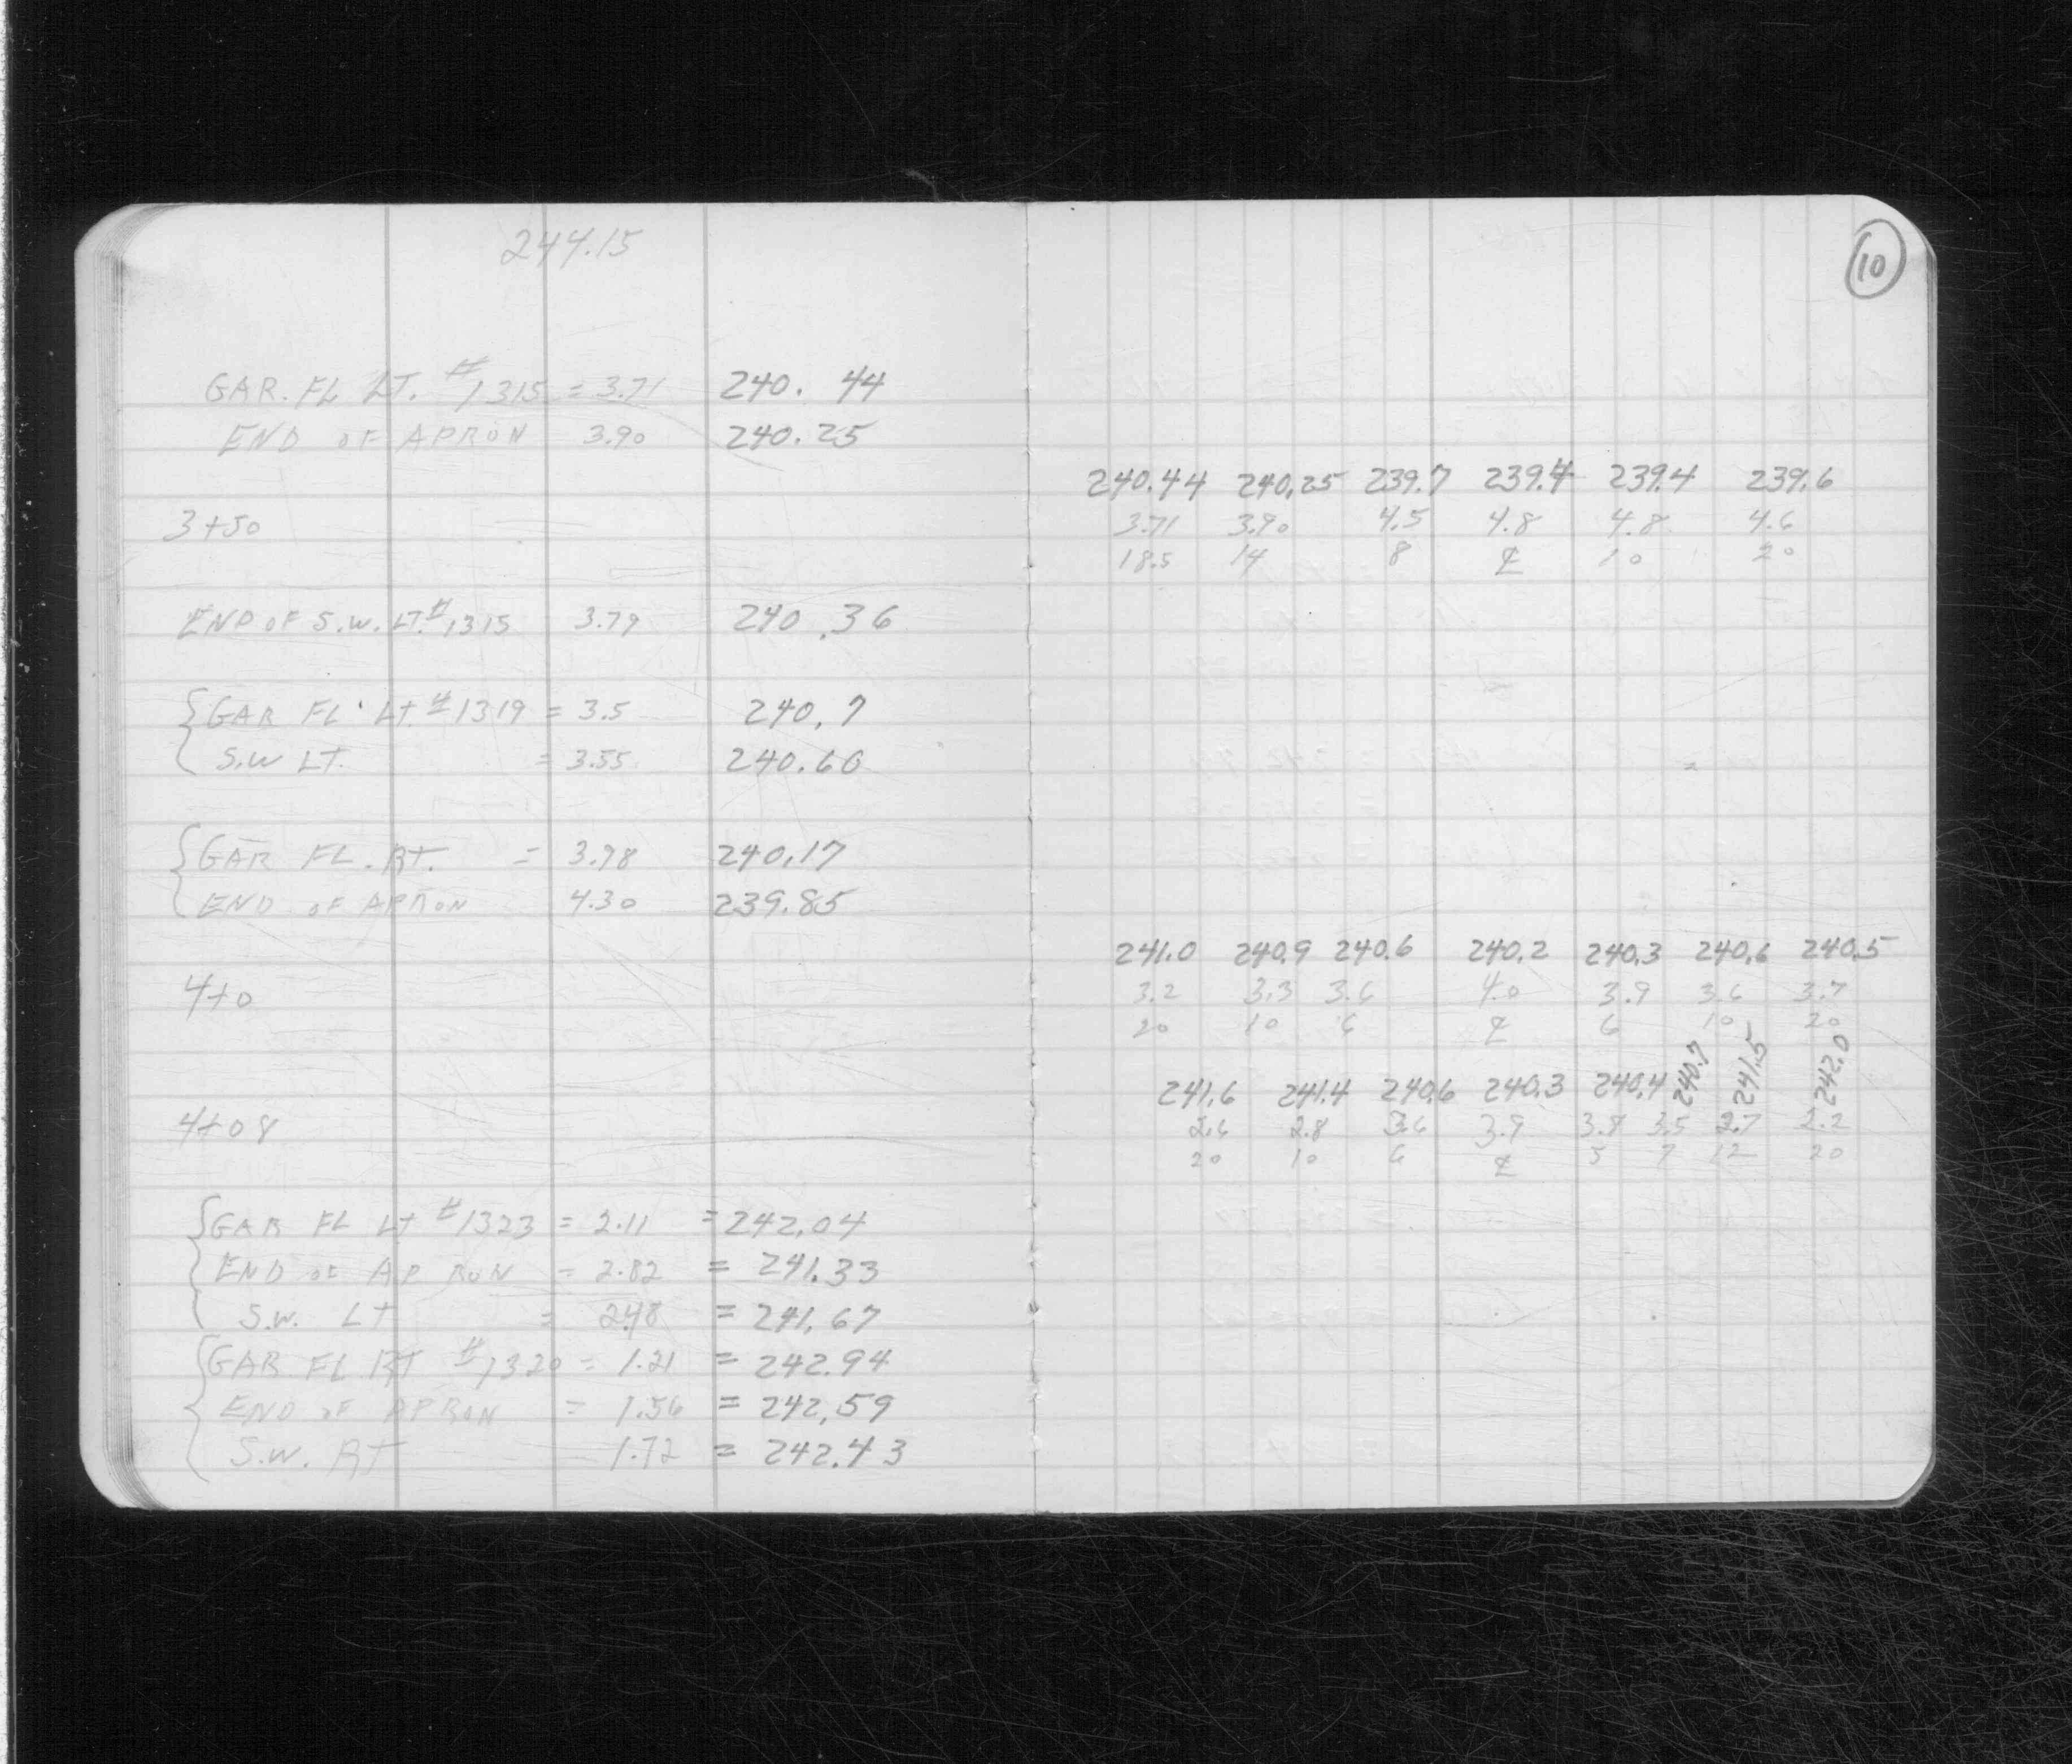 244.15
10
GAR. FL LT. #1315 = 3.71 240.44
END OF APRON 3.90 240.25
240.44 240.25 239.7 239.4 239.4 239.6
3+50 3.71 3.90 4.5 4.8 4.8 4.6
18.5 14 8 ℄ 10 20
END OF S.W. LT. #1315 3.79 240.36
GAR FL. LT. #1319 = 3.5 240.7
S.W LT. = 3.55 240.60
GAR FL. RT. = 3.98 240.17
END OF APRON 4.30 239.85
241.0 240.9 240.6 240.2 240.3 240.6 240.5
4+0 3.2 3.3 3.6 4.0 3.9 3.6 3.7
20 10 6 ℄ 6 10 20
241.6 241.4 240.6 240.3 240.4 240.7 241.5 242.0
4+08 2.6 2.8 3.6 3.9 3.8 3.5 2.7 2.2
20 10 6 ℄ 5 7 12 20
GAR FL LT #1323 = 2.11 = 242.04
END OF APRON = 2.82 = 241.33
S.W. LT = 2.48 = 241.67
GAR FL RT #1320 = 1.21 = 242.94
END OF APRON = 1.56 = 242.59
S.W. RT 1.72 = 242.43